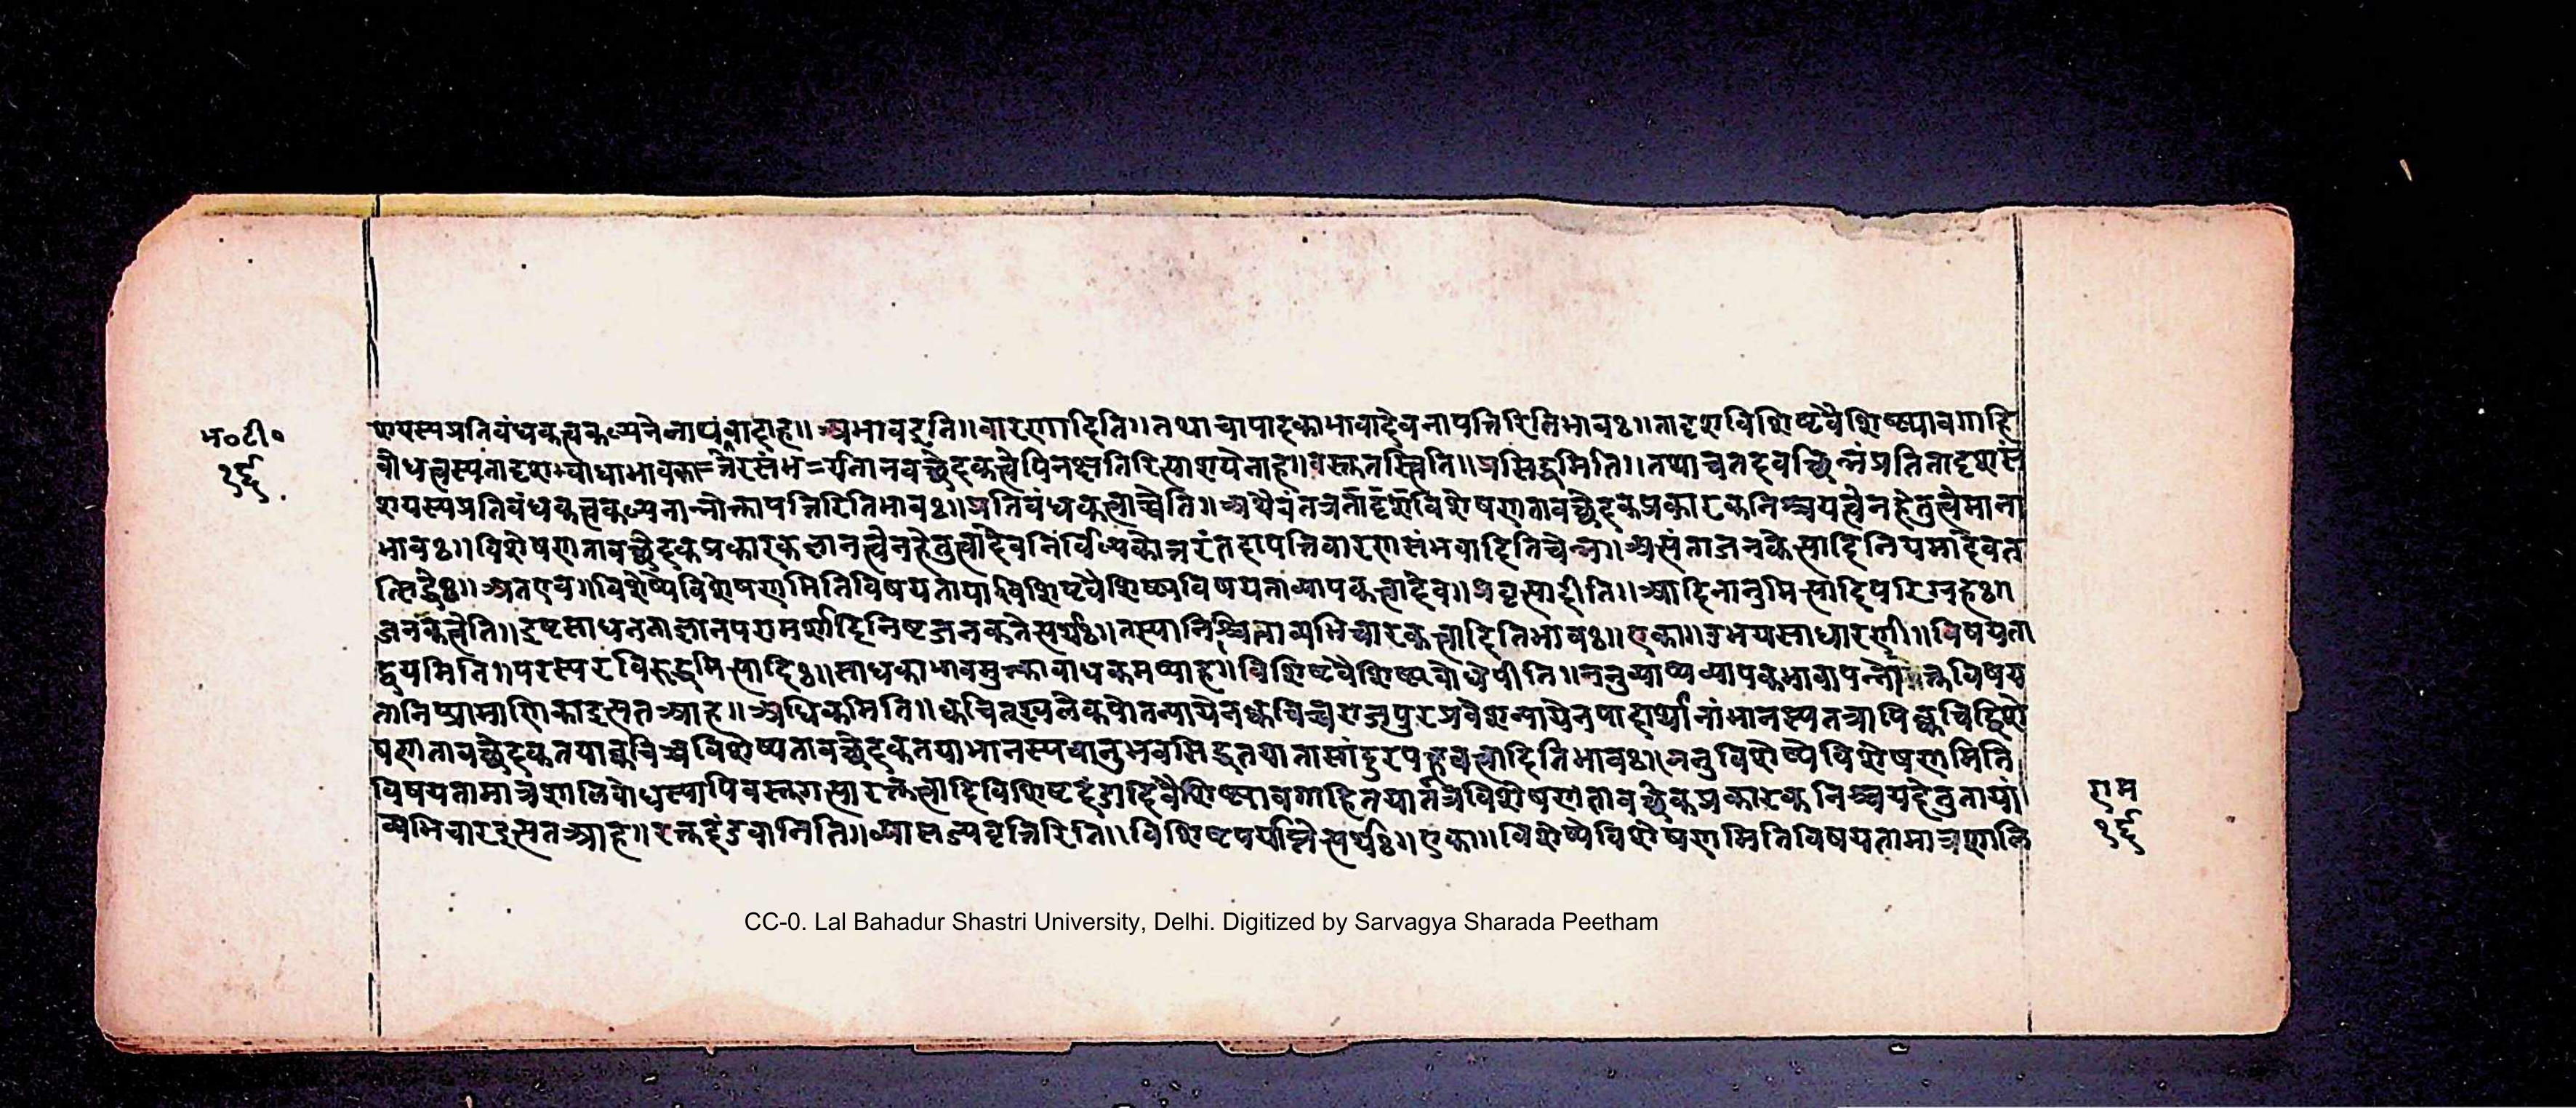 भ०टी०
१६
शयस्यप्रतिबंधकत्वकल्पनेनाप्युंवादाह॥अभावइति॥वारणादिति॥तथाचापादकाभावादेवनापत्तिरितिभावः॥तादृशविशिष्टवैशिष्ट्यावगाहि
बोधत्वस्यतादृशबोधाभावनानवच्छेदकत्वेपिनक्षतिरित्याशयेनाह॥वस्तुतस्त्विति॥प्रसिद्धमिति॥तथाचतदवच्छिन्नंप्रतितादृशसं
शयस्यप्रतिबंधकत्वकल्पनान्नोक्तापत्तिरितिभावः॥प्रतिबंधकत्वाच्चेति॥अथैवंतत्रतादृशविशेषणतावच्छेदकप्रकारकनिश्चयत्वेनहेतुत्वेमाना
भावः॥विशेषणतावच्छेदकप्रकारकज्ञानत्वेनहेतुत्वादेवनिर्विकल्पकोत्तरंतदापत्तिवारणसंभवादितिचेन्न॥असंताजनकेत्यादिनियमादेवत
त्सिद्धेः॥अतएव॥विशेष्येविशेषणमितिविषयतायाविशिष्टवैशिष्ट्यविषयताव्यापकत्वादेव॥प्रवृत्यादीति॥आदिनानुमित्यादिपरिग्रहः॥
जनकत्वेति॥इष्टसाधनताज्ञानपरामर्शादिनिष्टजनकतेत्यर्थः॥तस्यानिश्चिताव्यभिचारकत्वादितिभावः॥एका॥उभयसाधारणी॥विषयता
द्वयमिति॥परस्परविरुद्धमित्यादिः॥साधकाभावमुक्त्वाबाधकमप्याह॥विशिष्टवैशिष्ट्यबोधेपीति॥ननुव्याप्यव्यापकभावापन्नोक्तविषय
तानिष्प्रामाणिकाइत्यतआह॥अधिकमिति॥क्वचित्खलेकपोतन्यायेनक्वचिच्चराजपुरप्रवेशन्यायेनपदार्थानांभानस्यतत्रापिक्वचिद्विशे
षणतावच्छेदकतयाक्वचिच्चविशेष्यतावच्छेदकतयाभानस्यचानुभवसिद्धतयातासांदुरपह्नवत्वादितिभावः॥ननुविशेष्येविशेषणमिति
विषयतामात्रशालिबोधस्यापिवस्तुगत्यारक्तत्वादिविशिष्टदंडादिवैशिष्ट्यावगाहितयातत्रविशेषणतावच्छेकप्रकारकनिश्चयहेतुतायां
व्यभिचारइत्यतआह॥रक्तदंडवानिति॥व्यासज्यवृत्तिरिति॥विशिष्टपर्याप्तेत्यर्थः॥एका॥विशेष्येविशेषणमितिविषयतामात्रशालि
राम
१६
CC-0. Lal Bahadur Shastri University, Delhi. Digitized by Sarvagya Sharada Peetham